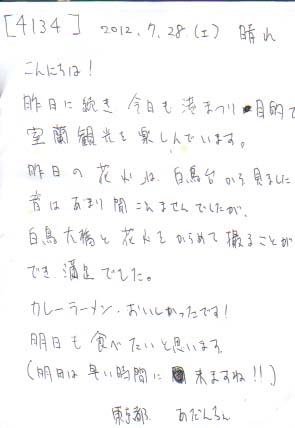 [4134] 2012.7.28.(土) 晴れ
こんにちは!
昨日に続き 今日も港まつり目的で
室蘭観光を楽しんでいます。
昨日の花火は、白鳥台から見ました
音はあまり聞こえませんでしたが、
白鳥大橋と花火をからめて撮ることが
でき満足でした。
カレーラーメン、おいしかったです!
明日も食べたいと思います。
(明日は早い時間に 来ますね!!)
東京都 あだんちん